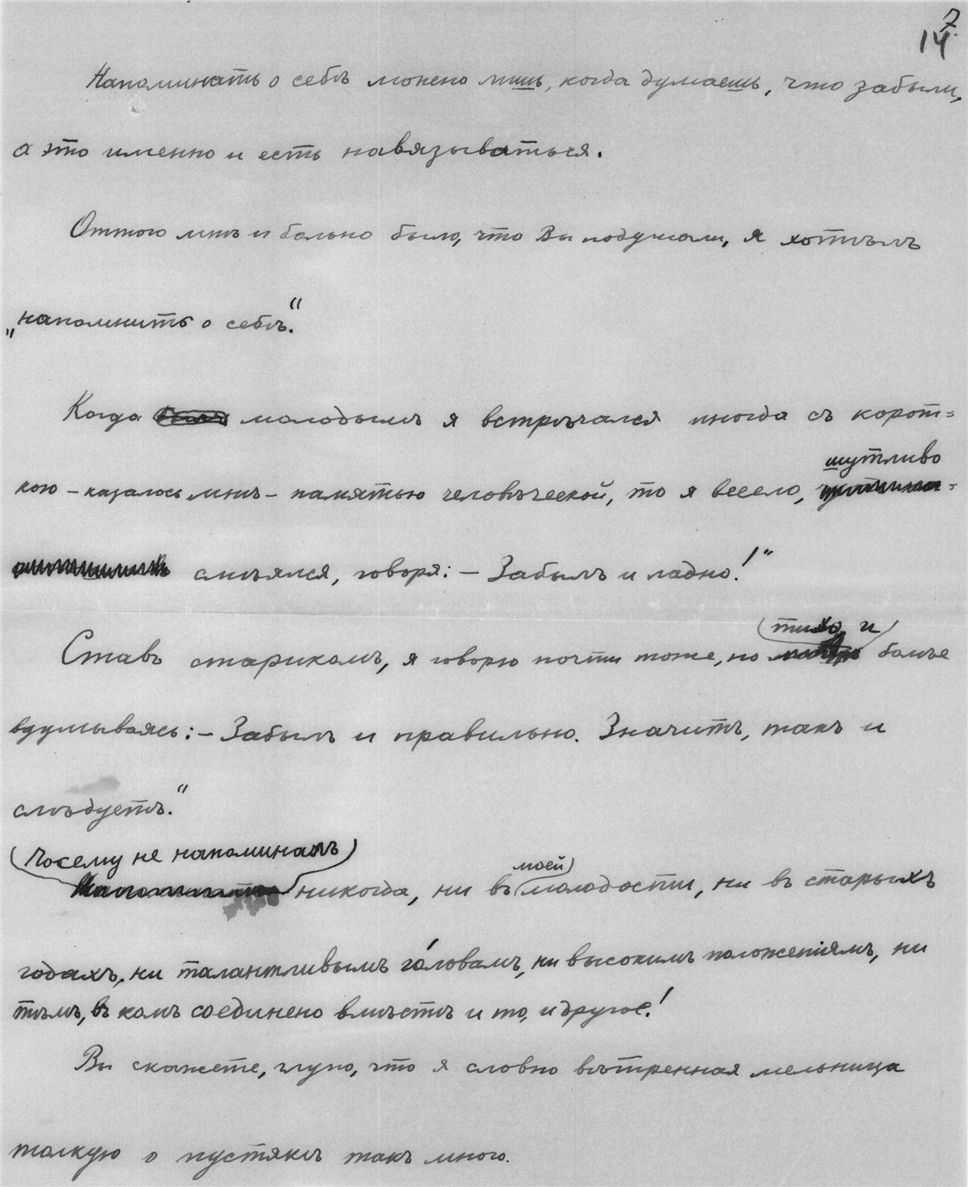 7
14
Напоминать о себѣ можно лишь, когда думаешь, что забыли,
а это именно и есть навязываться.
Оттого мнѣ и больно было, что Вы подумали, я хотѣлъ
„напомнить о себѣ.“
Когда молодымъ я встрѣчался иногда съ корот=
шутливо
кою – казалось мнѣ – памятью человѣческой, то я весело,
смѣялся, говоря: – Забылъ и ладно!“
тихо и
Ставъ старикомъ, я говорю почти тоже, но болѣе
вдумываясь: – Забылъ и правильно. Значитъ, такъ и
слѣдуетъ.“
Посему не напоминалъ
моей
никогда, ни въ молодости, ни въ старыхъ
годахъ, ни талантливымъ го́ловамъ, ни высокимъ положенiямъ, ни
тѣмъ, въ комъ соединено вмѣстѣ и то, и другое!
Вы скажете, глупо, что я словно вѣтренная мельница
толкую о пустякѣ такъ много.